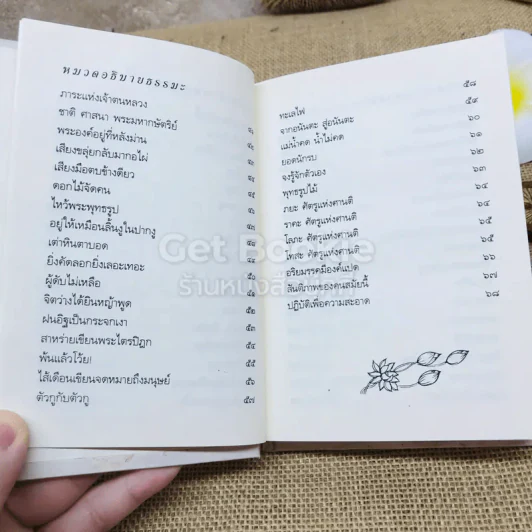 หมวดอธิบายธรรมะ
ภาระแห่งเจ้าตนหลวง
ชาติ ศาสนา พระมหากษัตริย์
พระองค์อยู่ที่หลังม่าน
เสียงขลุ่ยกลับมากอไผ่
เสียงมือตบข้างเดียว
ดอกไม้จัดคน
ไหว้พระพุทธรูป
อยู่ให้เหมือนลิ้นงูในปากงู
เต่าหินตาบอด
ยิ่งคัดลอกยิ่งเลอะเทอะ
ผู้ดับไม่เหลือ
จิตว่างได้ยินหญ้าพูด ๕๒
ฝนอิฐเป็นกระจกเงา ๕๓
สาหร่ายเขียนพระไตรปิฎก ๕๔
พ้นแล้วโว้ย! ๕๕
ไส้เดือนเขียนจดหมายถึงมนุษย์ ๕๖
ตัวกูกับตัวกู ๕๗
ทะเลไฟ ๕๘
จากอนันตะ สู่อนันตะ ๕๙
แม่น้ำคด น้ำไม่คด ๖๐
ยอดนักรบ ๖๑
จงรู้จักตัวเอง ๖๒
พุทธรูปไม้ ๖๓
ภยะ ศัตรูแห่งศานติ ๖๔
ราคะ ศัตรูแห่งศานติ ๖๔
โลภะ ศัตรูแห่งศานติ ๖๕
โทสะ ศัตรูแห่งศานติ ๖๕
อริยมรรคมีองค์แปด ๖๖
สันติภาพของคนสมัยนี้ ๖๗
ปฏิบัติเพื่อความสะอาด ๖๘
Get Bookie